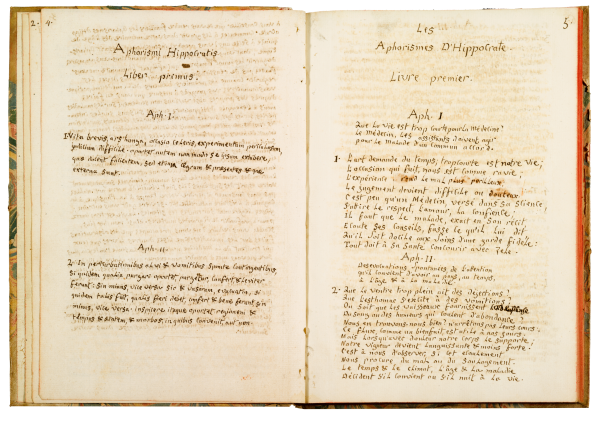 2. 4.
Aphorismi Hippocratis
Liber primus.
Aph. I.
1. Vita brevis, ars longa, occasio celeris, experimentum periculosum,
judicium difficile. oportet autem non modo se ipsum exhibere,
quae decent facientem, sed etiam Ægrum & praesentes & quae
externa sunt.
Aph. II.
2. In perturbationibus alvi & vomitibus sponte contingentibus,
si quidem qualia purgari oportet, purgetur, confert & leviter
ferunt: sin minus, vice versa. sic & vasorum, evacuatio, si
quidem talis fiat, qualis fieri debet, confert & bene ferunt, sin
minus, vice versa. inspicere itaque oportet regionem &
tempus & ætatem, & morbos, in quibus conveniat, aut non.
5.
Les
Aphorismes D'Hippocrate
Livre premier.
Aph. I
Que la vie est trop courte pour la Médecine:
Le Médecin, Les assistants doivent agir
pour le Malade d'un commun accord.
1. L'art demande du temps, trop courte est notre vie;
L'occasion qui fuit, nous est
L'expérience le mal plus périlleux
Le jugement devient difficile ou douteux.
C'est peu qu'un Médecin, versé dans sa science
S'attire le respect, l'amour, la confience;
Il faut que le malade, exact en son récit,
Ecoute ses conseils, fasse le qu'il lui dit
Qu'il soit docile aux soins d'une garde fidele:
Tout doit à sa santé concourir avec zele.
Aph. II.
Des evacuations
qu'il convient d'avoir au pays, au temps,
à l'âge & à la maladie.
2. Que le ventre trop plein ait des dejections:
Que l'esthomac s'excite à des vomissements
Ou soit que les vaisseaux fournissent
Du sang ou des humeurs qui coulent d'abondance
Nous en trouvons-nous bien? n'arrêtons pas leurs cours:
Ce flux, comme un bienfait, est utile à nos jours.
Mais lorsqu'avec douleur notre corps le supporte;
Notre vigueur devient languissante & moins forte:
C'est à nous d'observer si cet ecoulement
Nous procure du mal ou du soulagement.
Le temps & le climat, l'âge & la maladie
Décident s'il convient ou s'il nuit à la vie.